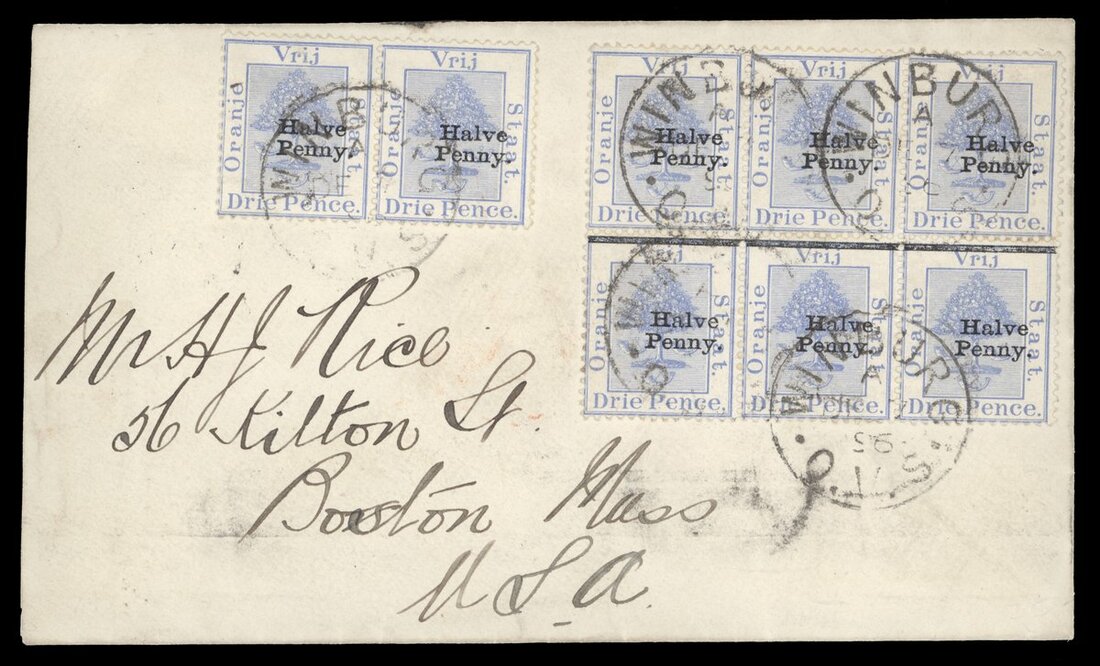 Vrij
Oranje Staat.
Halve Penny.
Halve Penny.
Drie Pence.
Drie Pence.
Vrij
Vrij
Oranje Oranje Staat. Staat.
Halve Penny.
Halve Penny.
Halve Penny.
Drie Pence.
Drie Pence.
Drie Pence.
Vrij
Vrij
Vrij
Oranje Oranje Staat. Staat.
Halve Penny.
Halve Penny.
Halve Penny.
Drie Pence.
Drie Pence.
Drie Pence.
WINBURG
A
WINBURG
A
WINBURG
95
Mr H J Rice
56 Kilton St.
Boston Mass
U S A.